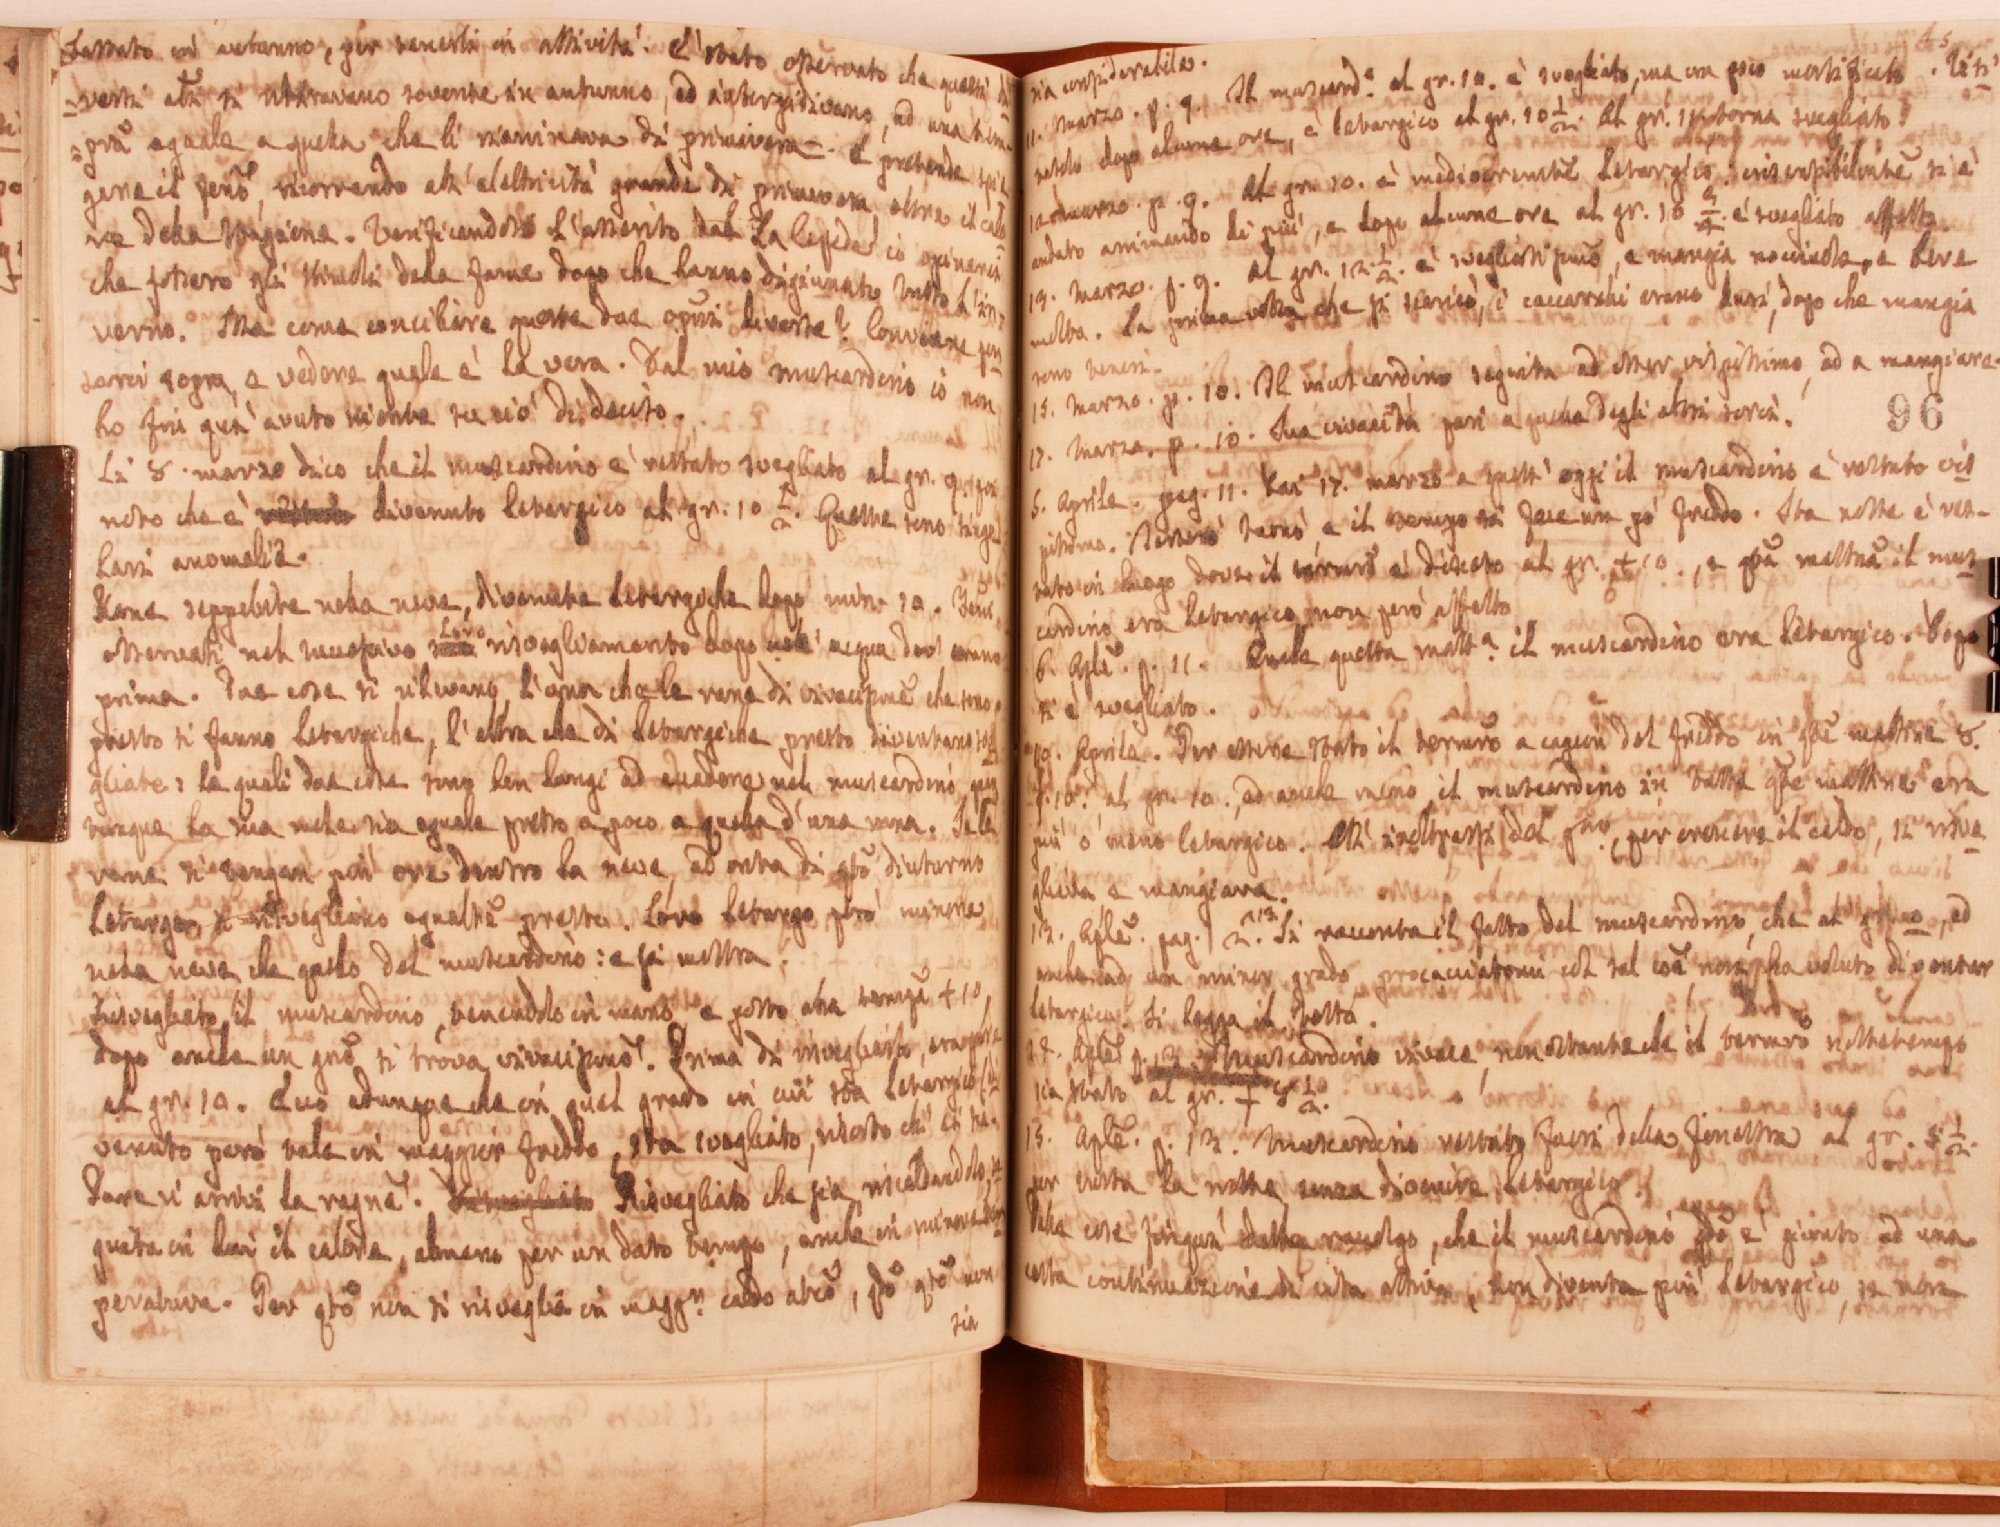 lassato in autunno, per tenerli in attività. E' stato osservato che questi di
versi alī si ritiravano sovente in autunno, ed intorpidivano, ad una tem
prā eguale a quella che li rianimava di primavera. E pretende spie
gare il fenō, ricorrendo all'elettricità grande di primavera oltre il calo
re della stagione. Verificandosi l'asserito dal La Cepede io opinerei
che fossero gli stimoli della fame dopo che hanno digiunato tutto l'in
verno. Ma come conciliare queste due opini diverse? Conviene pen
sarci sopra, e vedere quale è la vera. Dal mio muscardino io non
ho fin qui avuto niente su ciò di deciso.
Li 8. marzo dico che il muscardino è restato svegliato al gr. 9.
noto che è divenuto letargico al gr. 10 1/2. Queste sono singo
lari anomalie.
Rane seppellite nella neve, divenute letargiche dopo min. 10.
osservati nel successivo loro risvegliamento dopo nell'acqua dov'erano
prima. Due cose si rilevano, l'una che le rane di vivacissime che sono
presto si fanno letargiche, l'altra che di letargiche presto diventano sve
gliate: le quali due cose sono ben lungi ad accadere nel muscardino, quan
tunque la sua mole sia eguale presso a poco a quella d'una rana. Se le
rane si tengan più ore dentro la neve, ad onta di qto diuturno
letargo, si risvegliano egualtē presto. Loro letargo però minore
nella neve che quello del muscardino: e si mostra.
Risvegliato il muscardino, tenendolo in mano e posto alla tempā +10,
dopo anche un giō si trova vivacissimo. Prima di risvegliarlo, era pure
al gr. 10. Ecco adunque che in quel grado in cui sta letargico (di
venuto però tale in maggior freddo, sta svegliato, risorto ch'ei sia.
Pare si arrivi la ragnē. Risvegliato che sia, riscaldandolo, se
guita in lui il calore, almeno per un dato tempo, anche in minore tem
peratura. Per qto non si risveglia in maggr. caldo atmō, pō qto non
sia
sia considerabile.
11. Marzo. p. 9. Il muscard.o al gr. 10. è svegliato, ma un poco mortificato.
natolo dopo alcune ore, è letargico al gr. 10 1/2. Al gr. 11. torna svegliato.
12. Marzo. p. 9. Al gr. 10. è mediocremtē letargico. insensibilmtē si è
andato animando di più, e dopo alcune ore al gr. 10 3/4 è svegliato affatto
13. Marzo. p. 9. Al gr. 12. 1/2. è svegliatissimo, e mangia nocciole, e beve
molto. La prima volta che si scaricò, i caccarelli erano duri, dopo che mangia
sono teneri.
15. Marzo. p. 10. Il muscardino seguita ad esser vispissimo, ed a mangiare.
96
17. Marzo. p. 10. Sua vivacità pari a quella degli altri sorci.
5. Aprile. pag. 11. Dai 17. marzo a tutt'oggi il muscardino è restato vis
pissimo. Jersera tuonò, e il tempo si fece un pò freddo. Sta notte è res-
tato in luogo dove il termrō è disceso al gr. +10., e qtā mattina il mus
cardino era letargico, non però affatto
6. Aplē. p. 11. Anche questa matt.a il muscardino era letargico. Dopo
si è svegliato.
10. Aprile. Per essere stato il termrō a cagion del freddo in qte mattine 8.
p. 10. al gr. 10, ed anche meno, il muscardino in tutte qte mattine era
più o meno letargico. All'inoltrarsi del gno, per crescere il caldo, si risve
gliava e mangiava.
12. Aplē. pag. 12. 13. Si racconta il fatto del muscardino, che al gr. 0, ed
anche ad un minor grado procacciatomi col sal coē, non ha voluto diventar
letargico. Si legga il tutto.
14. Aplē. p. 13. Muscardino vivace, nonostante che il termrō nottetempo
sia stato al gr. + 8 1/2.
15. Aplē. p. 13. Muscardino restato fuori della finestra al gr. 8 1/2.
per tutta la notte, senza divenire letargico.
Dalle cose finquì dette raccolgo, che il muscardino qdo è giunto ad una
certa continuazione di vita attiva, non diventa più letargico, se non